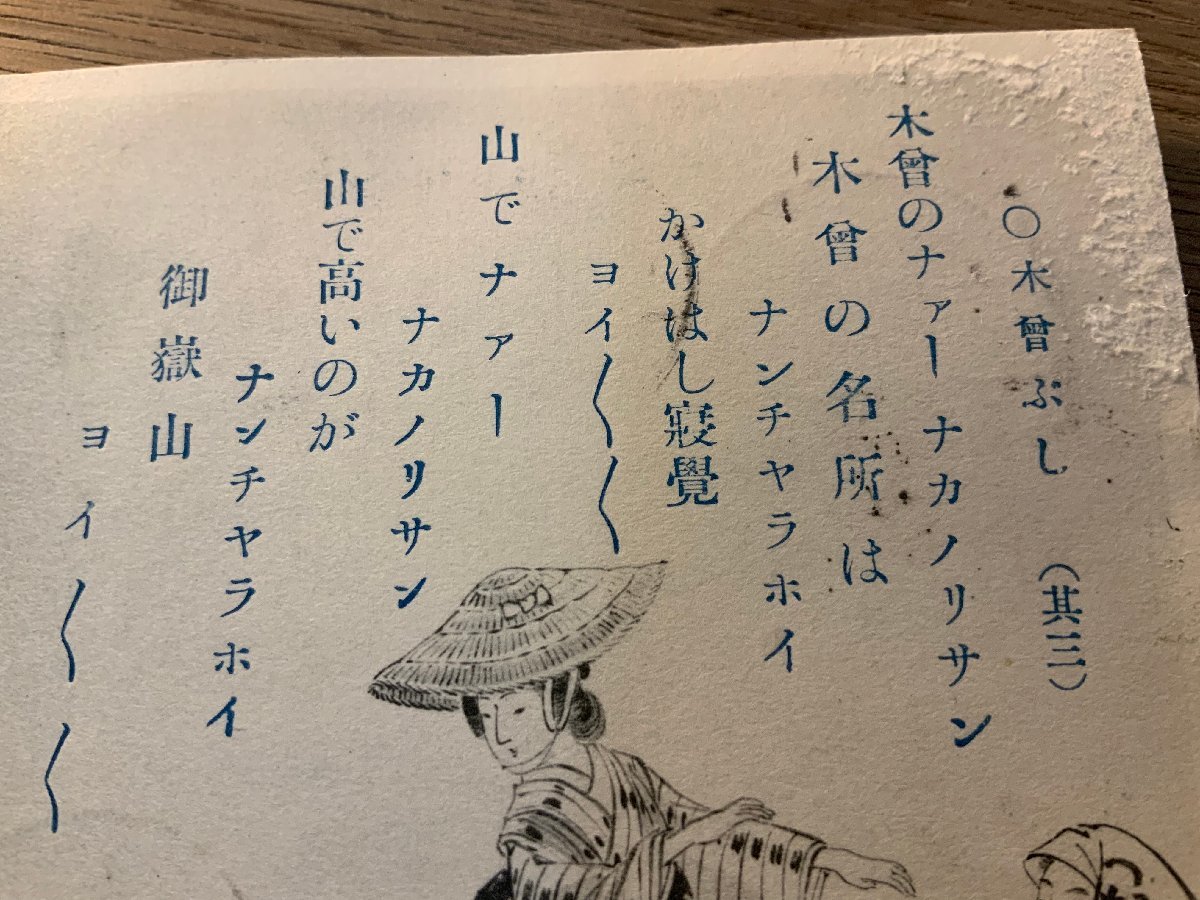 〇木曾ぶし (其三)
木曾のナァーナカノリサン
木曾の名所は
ナンチャラホイ
かけはし寝覺
ヨイ〱〱
山でナァー
ナカノリサン
山で高いのが
ナンチヤラホイ
御嶽山
ヨイ〱〱